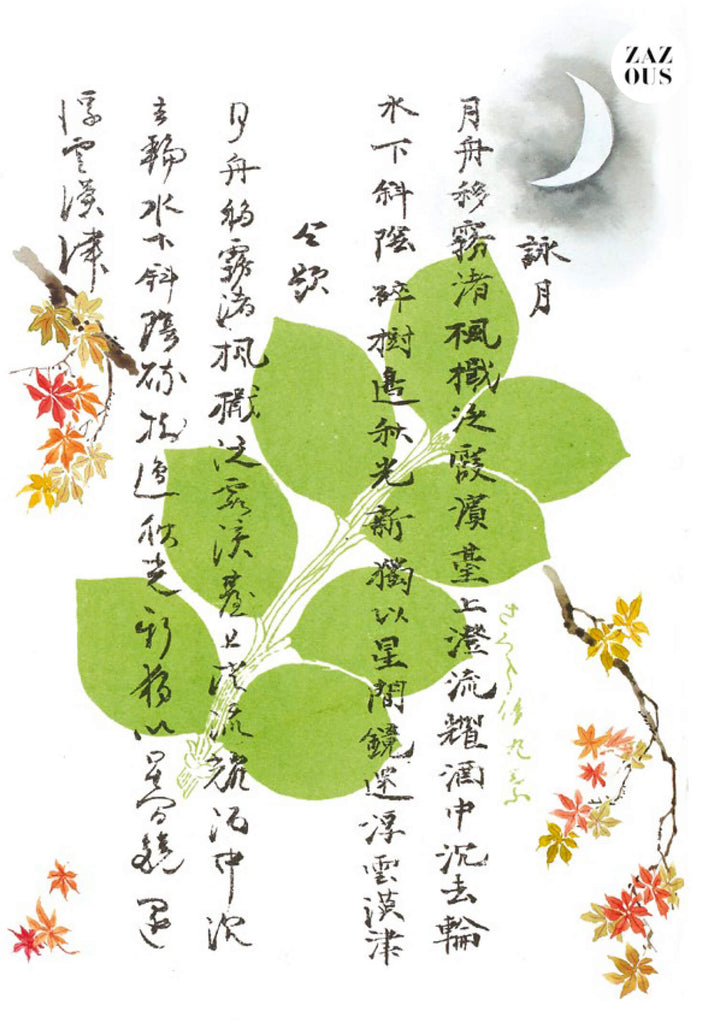 ZAZ
OUS
詠月
月舟移霧渚楓檝泛霞濱臺上澄流耀酒中沉去輪
水下斜陰碎樹邊秋光新獨以星間鏡還浮雲漢津
仝題
月舟移霧渚楓檝泛霞濱臺上澄流耀酒中沉
去輪水下斜陰碎樹邊秋光新獨以星間鏡還
浮雲漢津